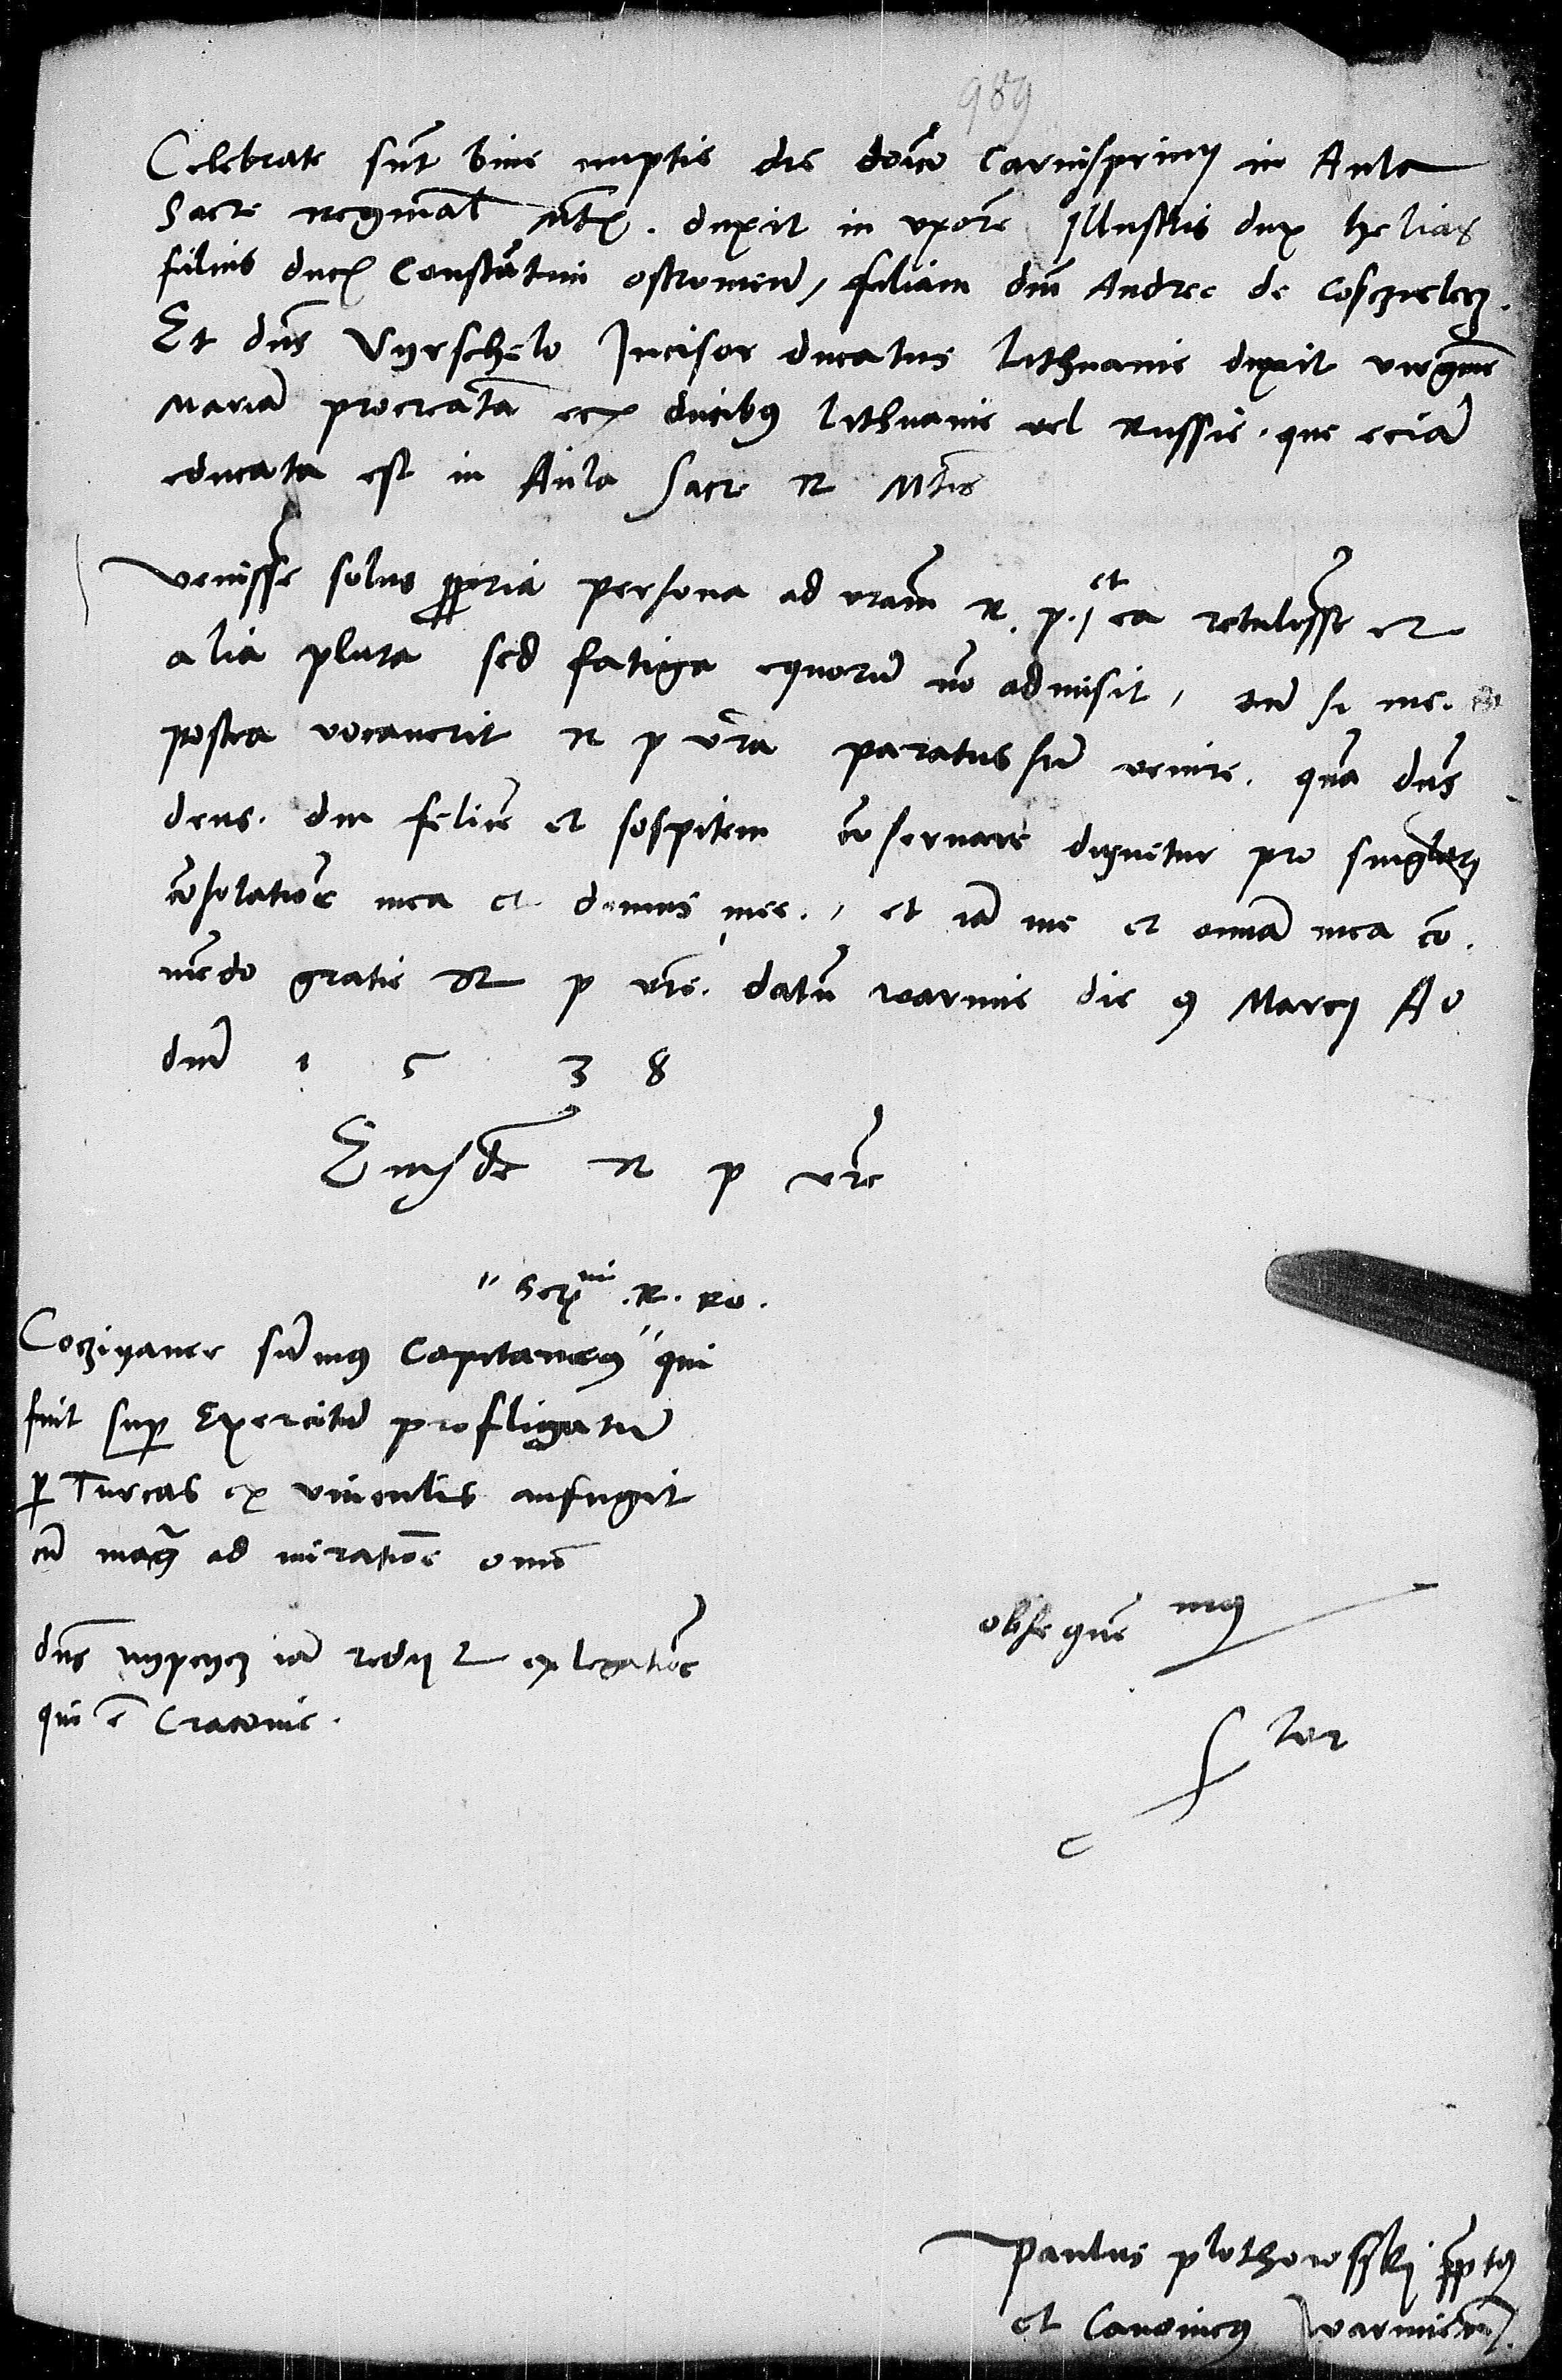 989
Celebrate sunt bine nuptie die domico Carnisprivij in Aula
Sacre Reginal Mtis. duxit in uxore Illustris dux helias
filius ducis Constantini ostrowien, filiam dni Andree de Cosczieletz.
Et dns Vyrschelo Incisor ducatus lithuanie duxit virgine
Maria procreata ex ducibus lithuanie vel Russie. que ecia
educata est in Aula Sacre R Mtis
venisse solus propria persona ad vram R. p. et ea retulisse et
alia plura sed fatiga equoru no admisit, tn si me
postea vocaverit R p vra paratus su venire. qua dns
deus. diu felice et sospitem conservare dignetur pro singulari
cosolatione mea et domus mee., et ia me et omnia mea co.
medo gratie R p vre. datu warmie die 9 Marcij Ao
dni 1 5 3 8
Eiusde R p vre
" Sermi .R. Ro.
Cocziyaner sumus Capitaneus " qui
fuit sup Exercitu profligatu
p Turcas ex vinculis aufugit
cu magna admiratione omni
dns nypczycz ia redijt ex legatione
qui e Cracovie.
obsequens
S tor
Paulus plothowsski ppts
et Canonicus warmien.